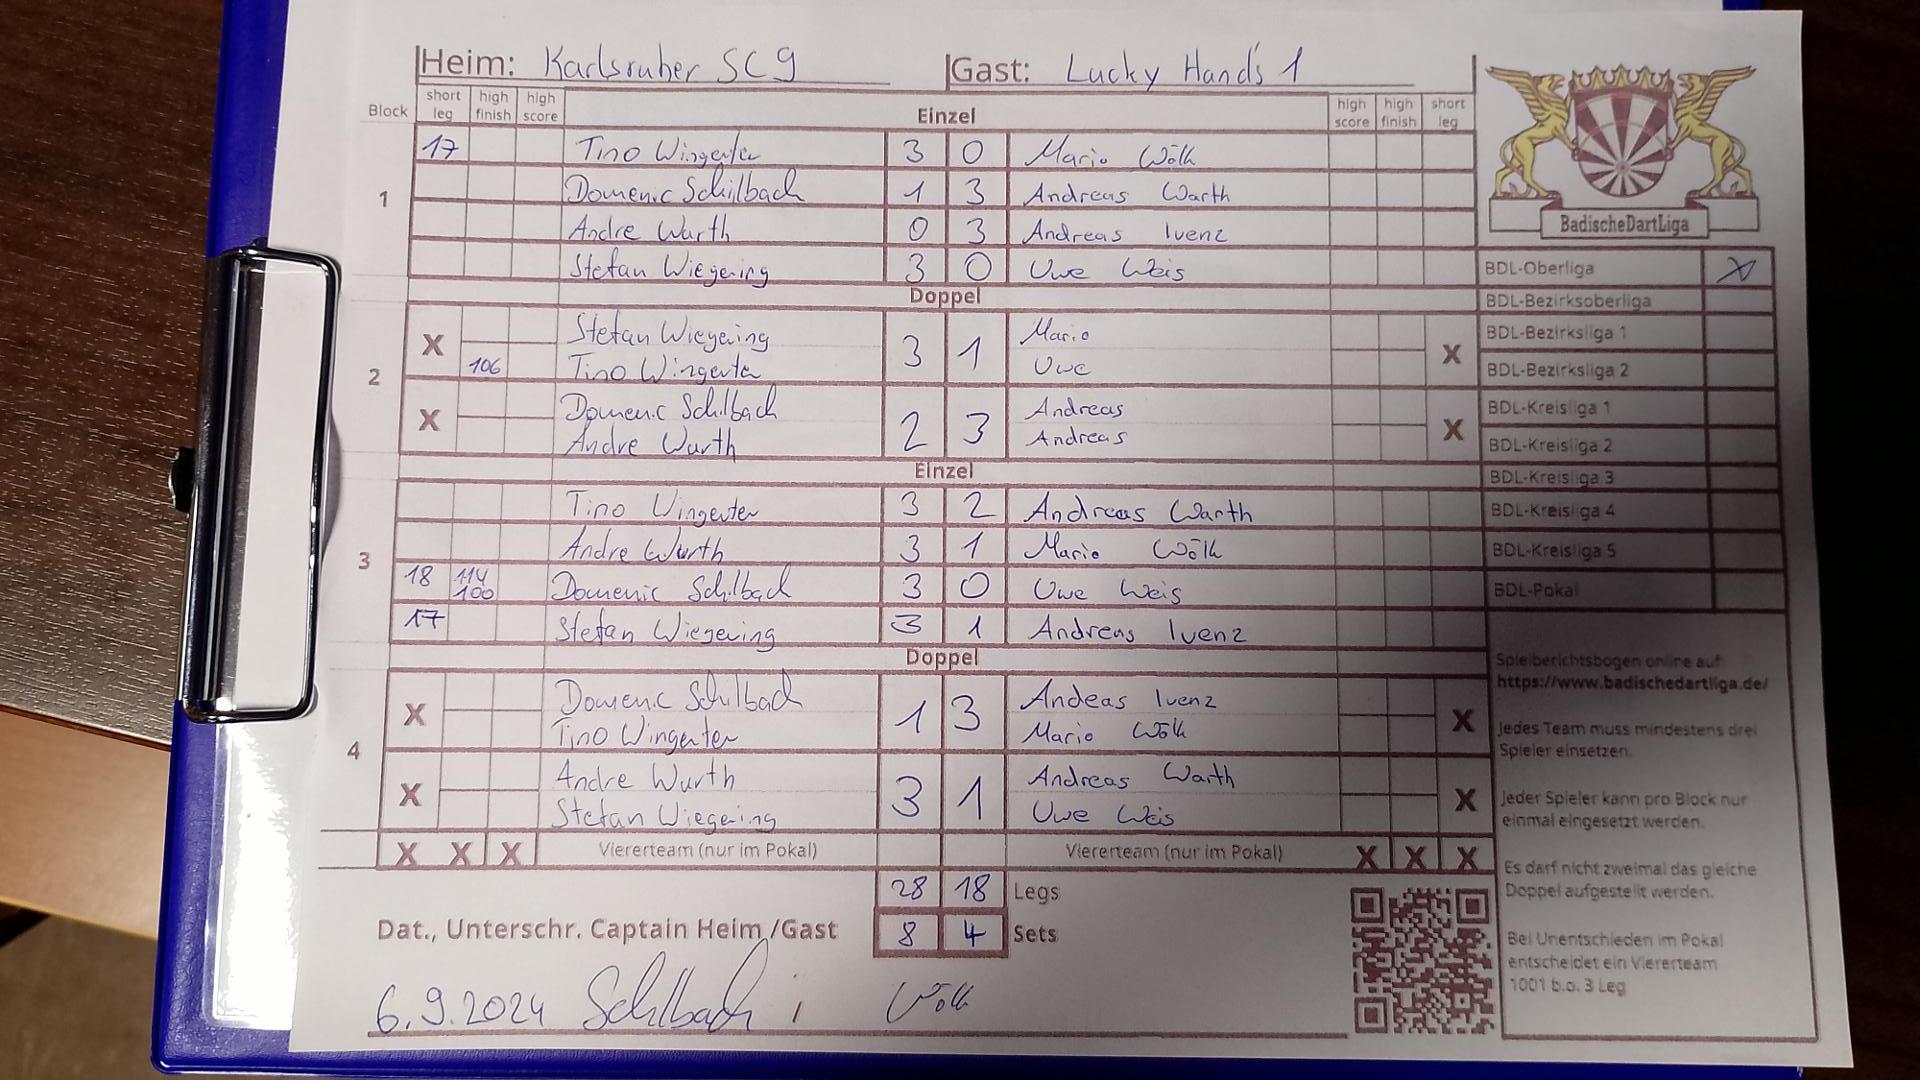 Heim: Karlsruher SC 9 Gast: Lucky Hands 1
Block short leg high finish high score Einzel high score high finish short leg
1
17 Tino Wingerter 3 0 Mario Wölk
Domenic Schilbach 1 3 Andreas Warth
Andre Wurth 0 3 Andreas Ivenz
Stefan Wiegering 3 0 Uwe Weis
Doppel
2
X Stefan Wiegering 3 1 Mario X
106 Tino Wingerter Uwe
X Domenic Schilbach 2 3 Andreas X
Andre Wurth Andreas
Einzel
3
Tino Wingerter 3 2 Andreas Warth
Andre Wurth 3 1 Mario Wölk
18 114 100 Domenic Schilbach 3 0 Uwe Weis
17 Stefan Wiegering 3 1 Andreas Ivenz
Doppel
4
X Domenic Schilbach 1 3 Andeas Ivenz X
Tino Wingerter Mario Wölk
X Andre Wurth 3 1 Andreas Warth X
Stefan Wiegering Uwe Weis
X X X Viererteam (nur im Pokal) Viererteam (nur im Pokal) X X X
28 18 Legs
Dat., Unterschr. Captain Heim /Gast 8 4 Sets
6.9.2024 Schilbach / Wölk
BadischeDartLiga
BDL-Oberliga X
BDL-Bezirksoberliga
BDL-Bezirksliga 1
BDL-Bezirksliga 2
BDL-Kreisliga 1
BDL-Kreisliga 2
BDL-Kreisliga 3
BDL-Kreisliga 4
BDL-Kreisliga 5
BDL-Pokal
Spielberichtsbogen online auf:
https://www.badischedartliga.de/
Jedes Team muss mindestens drei
Spieler einsetzen.
Jeder Spieler kann pro Block nur
einmal eingesetzt werden.
Es darf nicht zweimal das gleiche
Doppel aufgestellt werden.
Bei Unentschieden im Pokal
entscheidet ein Viererteam
1001 b.o. 3 Leg